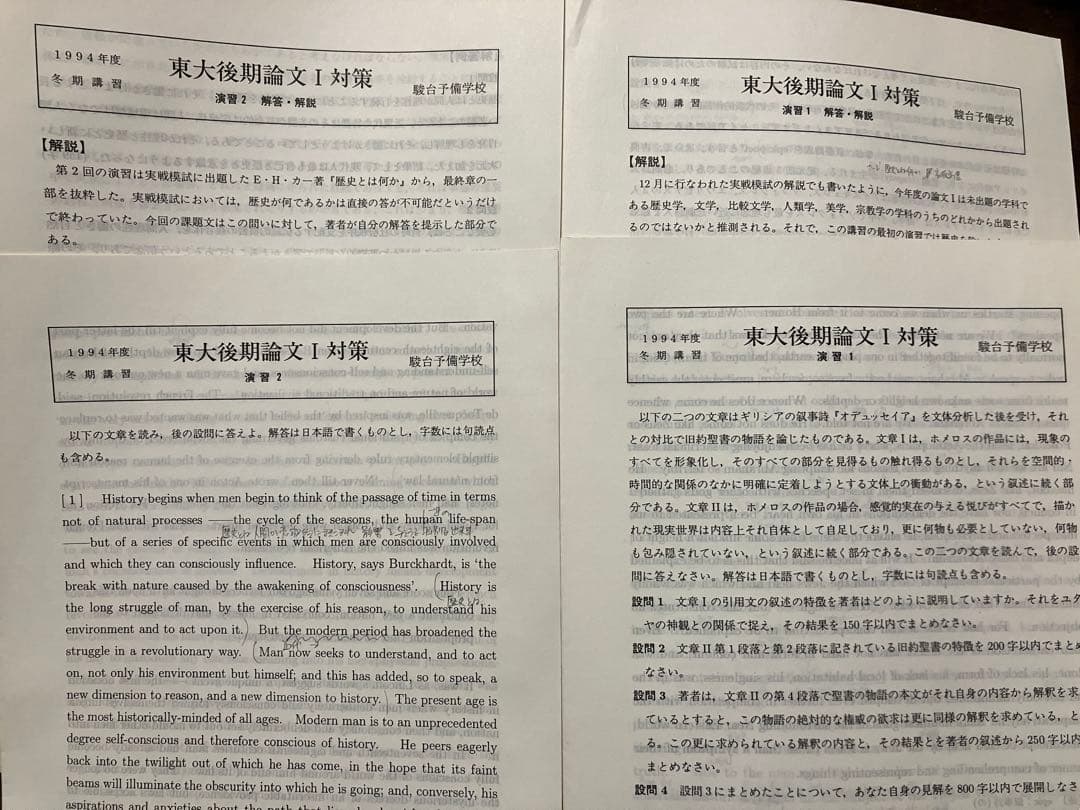 1994年度
冬期講習
東大後期論文Ⅰ対策
演習2 解答・解説
駿台予備学校
【解説】
第2回の演習は実戦模試に出題したE・H・カー著『歴史とは何か』から，最終章の一
部を抜粋した。実戦模試においては，歴史が何であるかは直接の答が不可能だというだけ
で終わっていた。今回の課題文はこの問いに対して，著者が自分の解答を提示した部分で
ある。
1994年度
冬期講習
東大後期論文Ⅰ対策
演習1 解答・解説
駿台予備学校
【解説】
12月に行なわれた実戦模試の解説でも書いたように，今年度の論文Ⅰは未出題の学科で
ある歴史学，文学，比較文学，人類学，美学，宗教学の学科のうちのどれかから出題され
るのではないかと推測される。それで，この講習の最初の演習では歴史を
1994年度
冬期講習
東大後期論文Ⅰ対策
演習2
駿台予備学校
以下の文章を読み，後の設問に答えよ。解答は日本語で書くものとし，字数には句読点
も含める。
[1] History begins when men begin to think of the passage of time in terms
not of natural processes ——the cycle of the seasons, the human life-span
——but of a series of specific events in which men are consciously involved
and which they can consciously influence. History, says Burckhardt, is ‘the
break with nature caused by the awakening of consciousness’. History is
the long struggle of man, by the exercise of his reason, to understand his
environment and to act upon it. But the modern period has broadened the
struggle in a revolutionary way. Man now seeks to understand, and to act
on, not only his environment but himself; and this has added, so to speak, a
new dimension to reason, and a new dimension to history. The present age is
the most historically-minded of all ages. Modern man is to an unprecedented
degree self-conscious and therefore conscious of history. He peers eagerly
back into the twilight out of which he has come, in the hope that its faint
beams will illuminate the obscurity into which he is going; and, conversely, his
aspirations and anxieties about the path that
1994年度
冬期講習
東大後期論文Ⅰ対策
演習1
駿台予備学校
以下の二つの文章はギリシアの叙事詩『オデュッセイア』を文体分析した後を受け，それ
との対比で旧約聖書の物語を論じたものである。文章Ⅰは，ホメロスの作品には，現象の
すべてを形象化し，そのすべての部分を見得るもの触れ得るものとし，それらを空間的・
時間的な関係のなかに明確に定着しようとする文体上の衝動がある，という叙述に続く部
分である。文章Ⅱは，ホメロスの作品の場合，感覚的実在の与える悦びがすべてで，描か
れた現実世界は内容上それ自体として自足しており，更に何物も必要としていない，何物
も包み隠されていない，という叙述に続く部分である。この二つの文章を読んで，後の設
問に答えなさい。解答は日本語で書くものとし，字数には句読点も含める。
設問1 文章Ⅰの引用文の叙述の特徴を著者はどのように説明していますか。それをユダ
ヤの神観との関係で捉え，その結果を150字以内でまとめなさい。
設問2 文章Ⅱ第1段落と第2段落に記されている旧約聖書の特徴を200字以内でまとめ
なさい。
設問3 著者は，文章Ⅱの第4段落で聖書の物語の本文がそれ自身の内容から解釈を求
ているとすると，この物語の絶対的な権威の欲求は更に同様の解釈を求めている，と
る。この更に求められている解釈の内容と，その結果とを著者の叙述から250字以内
まとめなさい。
設問4 設問3にまとめたことについて，あなた自身の見解を800字以内で展開しなさ